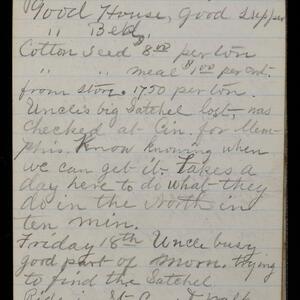 Good House, Good Supper
" Bed
Cotton Seed $8.00 per ton
" " meal $1.00 per cnt.
from stor. 17.50 per ton.
Uncle's big Satchel lost, was
checked at Cin. for Mem-
phis. Know knowing when
we can get it. Takes a
day here to do what they
do in the North in
ten min.
Friday 18th Uncle busy
good part of morn. trying
to find the Satchel.